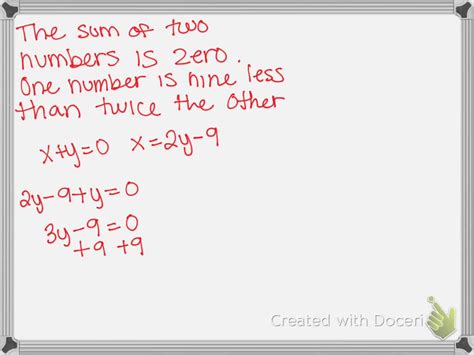 The sum of two
numbers is zero.
One number is nine less
than twice the other
x+y=0 x=2y-9
2y-9+y=0
3y-9=0
+9 +9
Created with Doceri